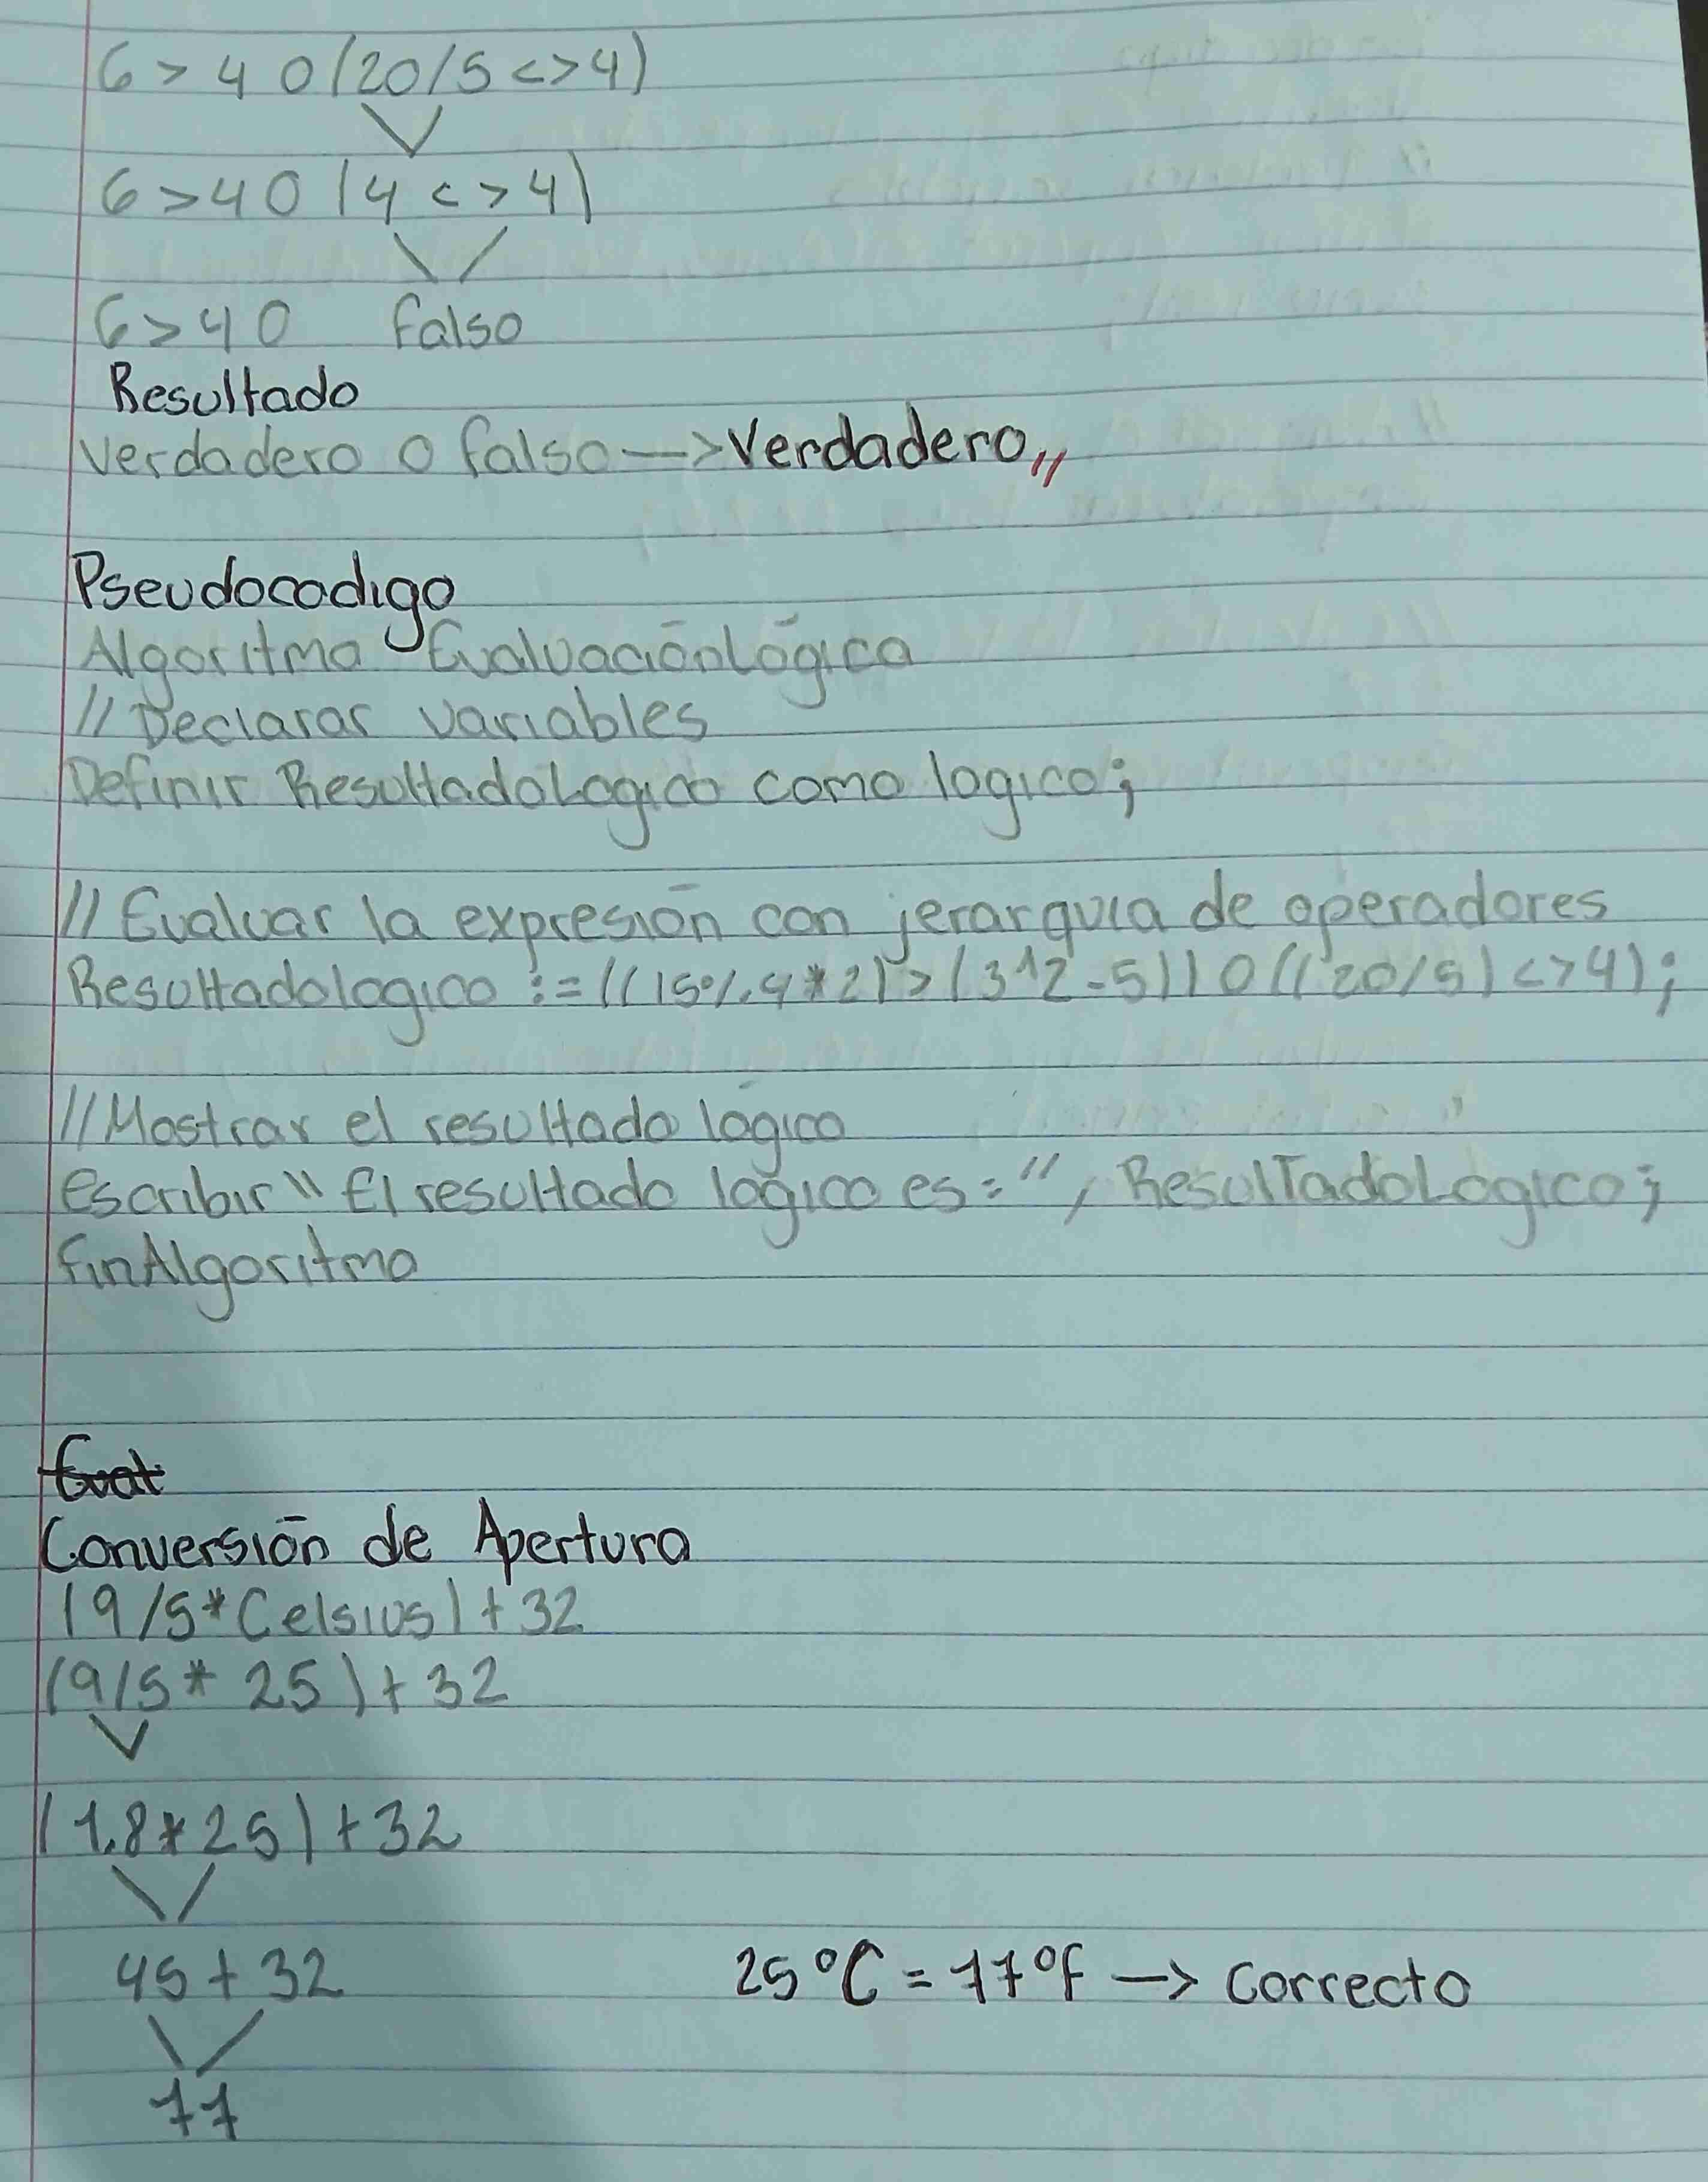 6 > 4 O (20/5 <> 4)
6 > 4 O (4 <> 4)
6 > 4 O falso
Resultado
Verdadero o falso —> Verdadero,,
Pseudocodigo
Algoritmo EvaluaciónLógica
// Declarar variables
Definir ResultadoLogico como logico;
// Evaluar la expresión con jerarquia de operadores
Resultadologico := (((15%4*2) > (3^2-5)) O ((20/5) <> 4);
// Mostrar el resultado lógico
Escribir "El resultado lógico es: ", ResulTadoLogico;
finAlgoritmo
Eval
Conversión de Apertura
(9/5*Celsius)+32
(9/5* 25)+32
(1.8*25)+32
45+32
25°C = 77°F —> Correcto
77